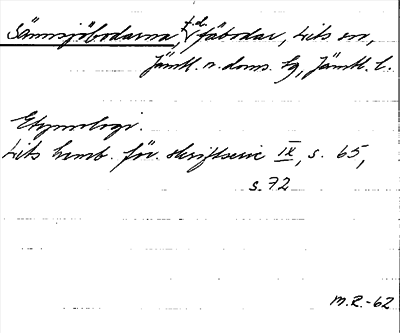 Sännsjöbodarna, f.d. fäbodar, Lits sn,
Jämtl. n. doms. hg, Jämtl. l.
Etymologi.
Lits hemb. för. skriftserie IX, s. 65,
s. 72
M.R.-62